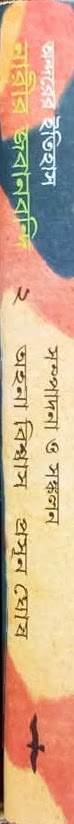 অন্দরের ইতিহাস
নারীর জবানবন্দি
২
সম্পাদনা ও সংকলন
অহনা বিশ্বাস প্রসূন ঘোষ